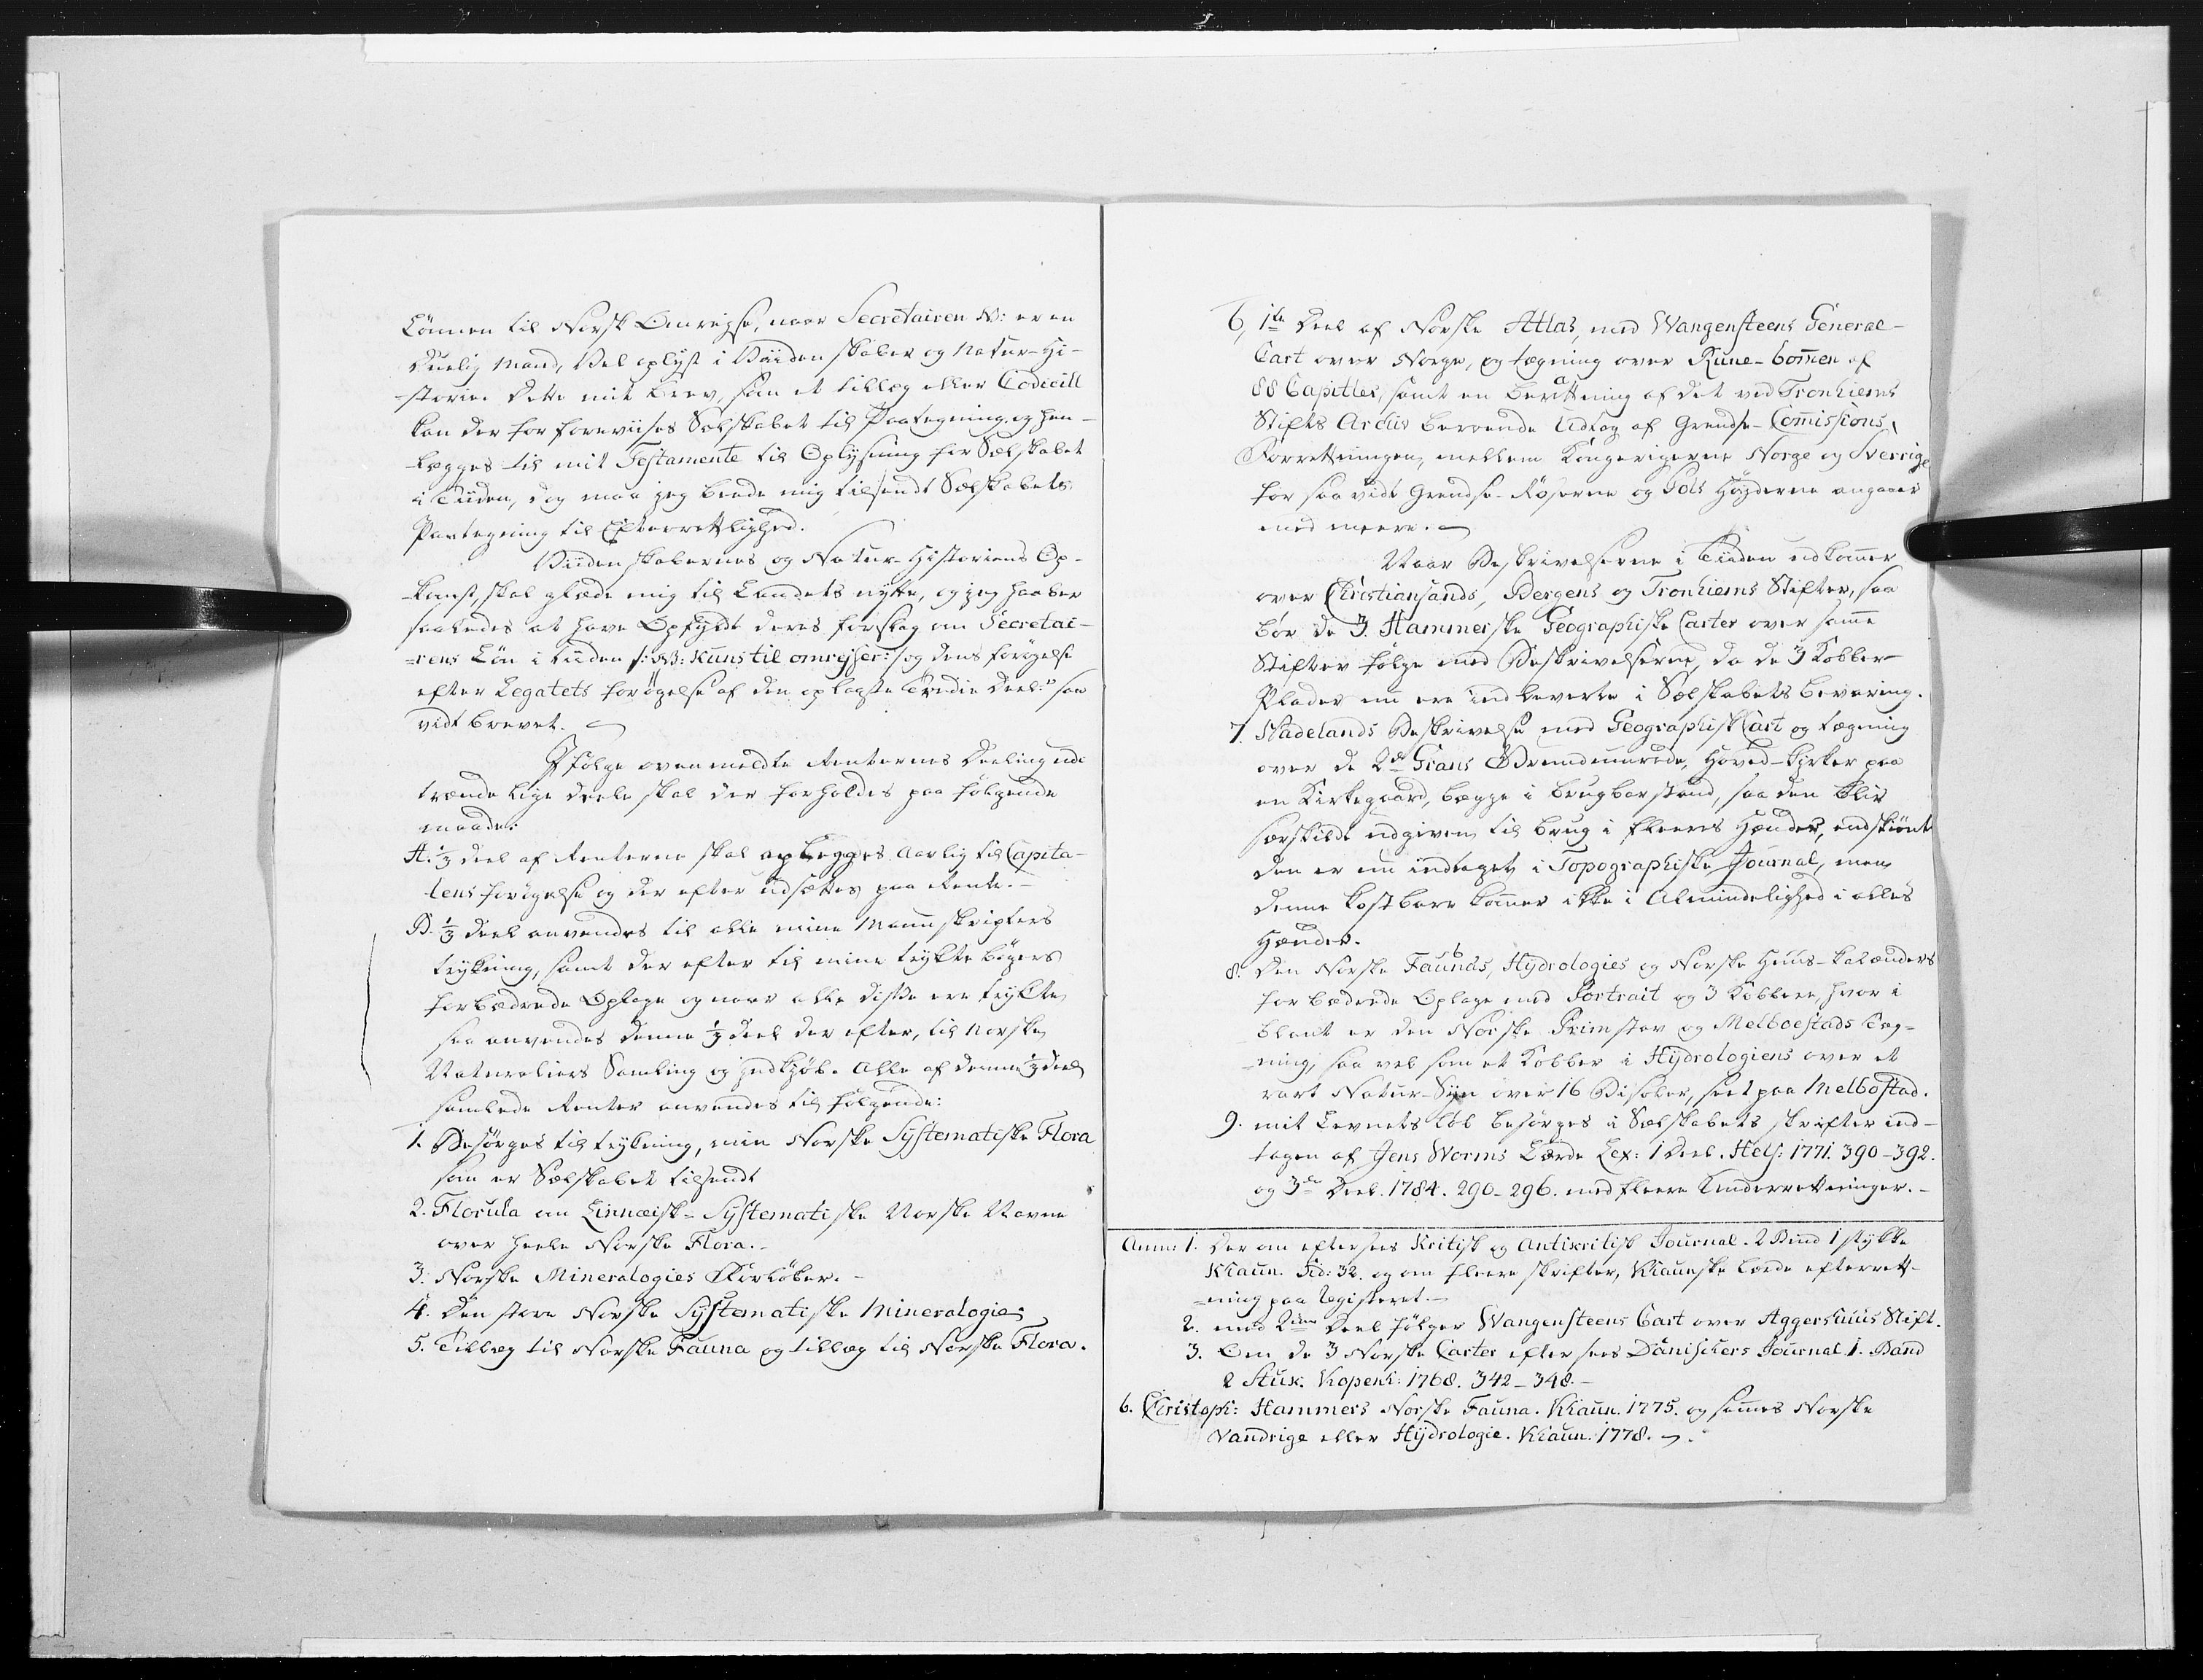 Lönnen til Norsk Omrejse, naar Secretairen NB: er en
Duelig Mand, Vel oplyst i Viidenskaber og Natur-Hi-
storie. Dette mit brev, som et tillæg eller Codicill
kan der for foreviises Selskabet til Paategning og hen-
lægges til mit Testamente til Oplysning for Selskabet
i Tiiden, dog maa jeg beede mig tilsendt Selskabets
Paategning til Efterrettlighed.
Viidenskabernes og Natur-Historiens Op-
komst, skal glæde mig til Landets nytte, og jeg haaber
saaledes at have Opfyldt deres forslag om Secretai-
-rens Løn i Tiiden /: NB: kuns til omrejser:/ og dens forøgelse
efter Legatets forøgelse af den oplagte Tredie Deel:" saa
vidt brevet.
Ifølge ovenmeldte Renternes Deeling udi
trende lige deele skal der forholdes paa følgende
maade:
A. 1/3 deel af Renterne skal oplegges Aarlig til Capita-
lens forögelse og der efter udsættes paa Rente.-
B. 1/3 deel anvendes til alle mine Manuskripters
trykning, samt der efter til mine trykte bögers
forbedrede Oplage og naar alle disse ere trykte,
saa anvendes denne 1/3 deel der efter, til Norske
Naturaliers Samling og Indkjøb. Alle af denne 1/3 deel
samlede Renter anvendes til følgende:
1. Besørges til trykning, min Norske Systematiske Flora
som er Selskabet tilsendt
2. Florula om Linnæisk-Systematiske Norske Navne
over heele Norske Flora.-
3. Norske Mineralogies Forløber.-
4. Den store Norske Systematiske Mineralogie,
5. Tillæg til Norske Fauna og tillæg til Norske Flora.
6, 1te Deel af Norske Atlas, med Wangensteens General-
Cart over Norge, og tegning over Rune-bomen af
88 Capitler, samt en Berættning af det ved Tronhiems
Stifts Archiv beroende Udtog af Grendse-Comissions,
Forrettningen, mellem Kongerigerne Norge og Sverrige
for saa vidt Grendse-Røserne og Pols Høyderne angaaer
med meere.
Naar Beskrivelserne i Tiiden udkommer
over Christiansands, Bergens og Tronhiems Stifter, saa
bör de 3. Hammerske Geographiske Carter over samme
Stifter følge med Beskrivelserne, da de 3 Kobber-
Plader nu ere indleverte i Selskabets bevaring.
7. Hadelands Beskrivelse med Geographisk Cart og tegning
over de 2de Grans Grundmurede, Hoved-Kirker paa
en Kirkegaard, begge i brugbar stand, saa den blir
særskildt udgiven til brug i fleeres Hænder, endskiønt
den er nu indtaget i Topographiske Journal, men
denne kostbare kommer ikke i Almindelighed i alles
Hænder.
8. Den Norske Faunas, Hydrologies og Norske Huus-Kalenders
forbedrede Oplage med Portrait og 3 Kobbere, hvor i
blant er den Norske Primstav og Melboestads Teg-
-ning, saa vel som et Kobber i Hydrologiens over et
rart Natur-Syn over 16 Bisoler, seet paa Melbostad.
9. mit Levnets løb besørges i Selskabets skrifter ind-
tagen af Jens Worms Lærde Lex: 1 Deel. Hels: 1771. 390-392.
og 3de Deel. 1784. 290-296. med fleere Underrettninger.-
Anm: 1. Der om eftersees Kritisk og Antikritisk Journal. 2 Bind 1 stykke
Khaun. Sid: 32. og om fleere skrifter, Khaunske Lærde efterrett-
-ning paa Registeret.-
2. med 2den Deel følger Wangensteens Cart over Aggershuus Stift.
3. Om de 3 Norske Carter eftersees Dänischers Journal. 1. Band
2 Stük. Kopenh: 1768. 342-348.-
6. Christoph: Hammers Norske Fauna. Khaun. 1775. og sammes Norske
Vandrige eller Hydrologie. Khaun. 1778.